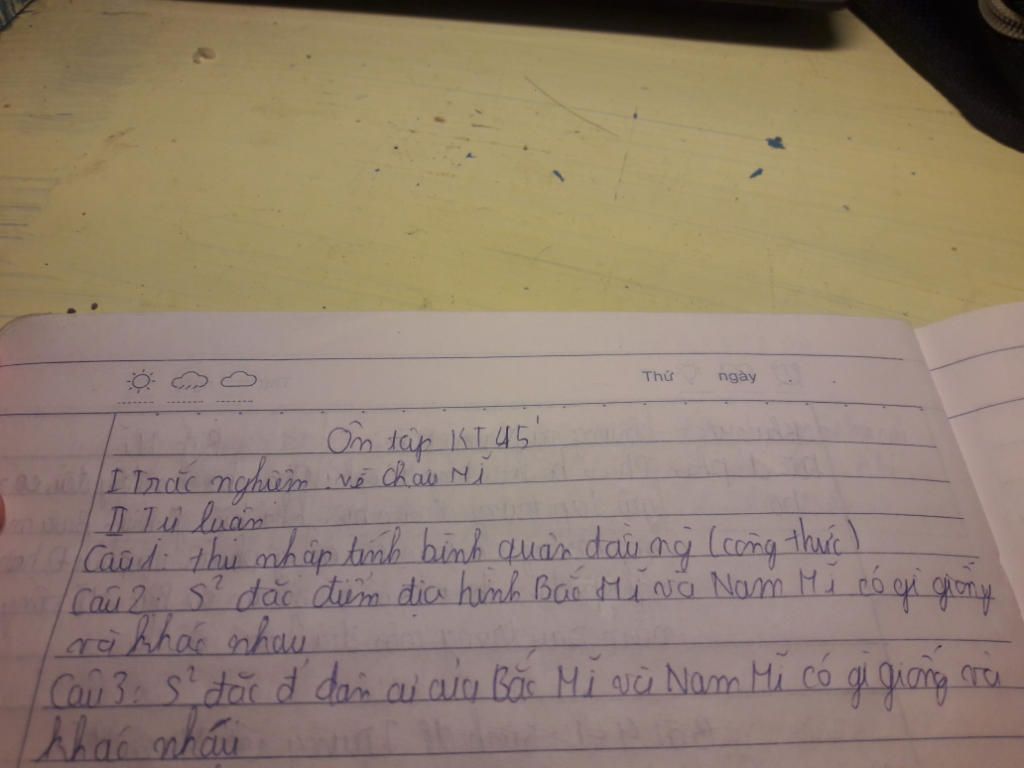 Thứ ngày
Ôn tập KT 45'
I Trắc nghiệm: về Châu Mĩ
II Tự luận
Câu 1: thu nhập tính bình quân đầu ng (công thức)
Câu 2: S² đặc điểm địa hình Bắc Mĩ và Nam Mĩ có gì giống
và khác nhau
Câu 3: S² đặc đ dân cư của Bắc Mĩ và Nam Mĩ có gì giống và
khác nhau